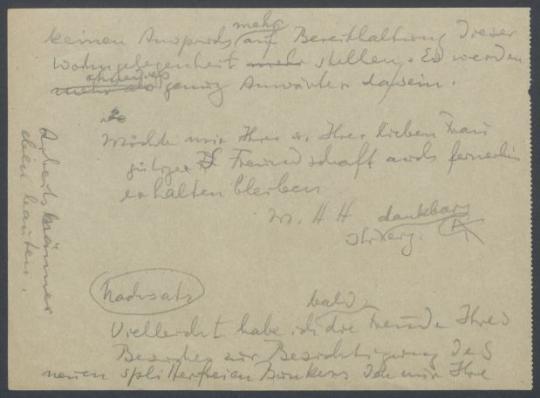 keinen Anspruch mehr auf Bereithaltung dieser
Wohngelegenheit mehr stellen. Es werden
mehr als genug Anwärter da sein.
Möchte mir Ihre u. Ihrer lieben Frau
Freundschaft auch fernerhin
erhalten bleiben
M. H H dankbarst
Ihr erg. A
Nachsatz
Vielleicht habe ich bald die Freude Ihres
Besuches zur Besichtigung des
neuen splitterfreien Bunkers den mir Ihre